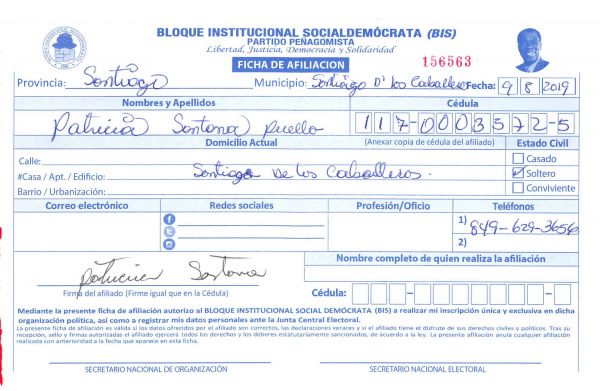 BLOQUE INSTITUCIONAL SOCIALDEMÓCRATA (BIS)
PARTIDO PEÑAGOMISTA
Libertad, Justicia, Democracia y Solidaridad
FICHA DE AFILIACION
156563
Provincia: Santiago Municipio: Santiago D' los Caballeros Fecha: 9 8 2019
Nombres y Apellidos Cédula
Patricia Santana Puello 117-0003572-5
Domicilio Actual (Anexar copia de cédula del afiliado) Estado Civil
Calle: Casado
#Casa / Apt. / Edificio: Santiago De los Caballeros. Soltero
Barrio / Urbanización: Conviviente
Correo electrónico Redes sociales Profesión/Oficio Teléfonos
1) 849-629-3656
2)
Nombre completo de quien realiza la afiliación
Santana
Firma del afiliado (Firme igual que en la Cédula) Cédula:
Mediante la presente ficha de afiliación autorizo al BLOQUE INSTITUCIONAL SOCIAL DEMÓCRATA (BIS) a realizar mi inscripción única y exclusiva en dicha
organización política, así como a registrar mis datos personales ante la Junta Central Electoral.
La presente ficha de afiliación es válida si los datos ofrecidos por el afiliado son correctos, las declaraciones veraces y si el afiliado tiene el disfrute de sus derechos civiles y políticos. Tras su
recepción, sello y firmas autorizadas el afiliado ejercerá todos los derechos y los deberes estatutariamente sancionados, de acuerdo a la ley. La presente afiliación anula cualquier afiliación
realizada con anterioridad a la fecha que aparece en esta ficha.
SECRETARIO NACIONAL DE ORGANIZACIÓN SECRETARIO NACIONAL ELECTORAL